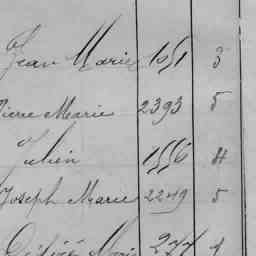 Jean Marie 1051 3
Pierre Marie 2393 5
Julien 1556 4
Joseph Marie 2249 5
Désiré Marie 277 4